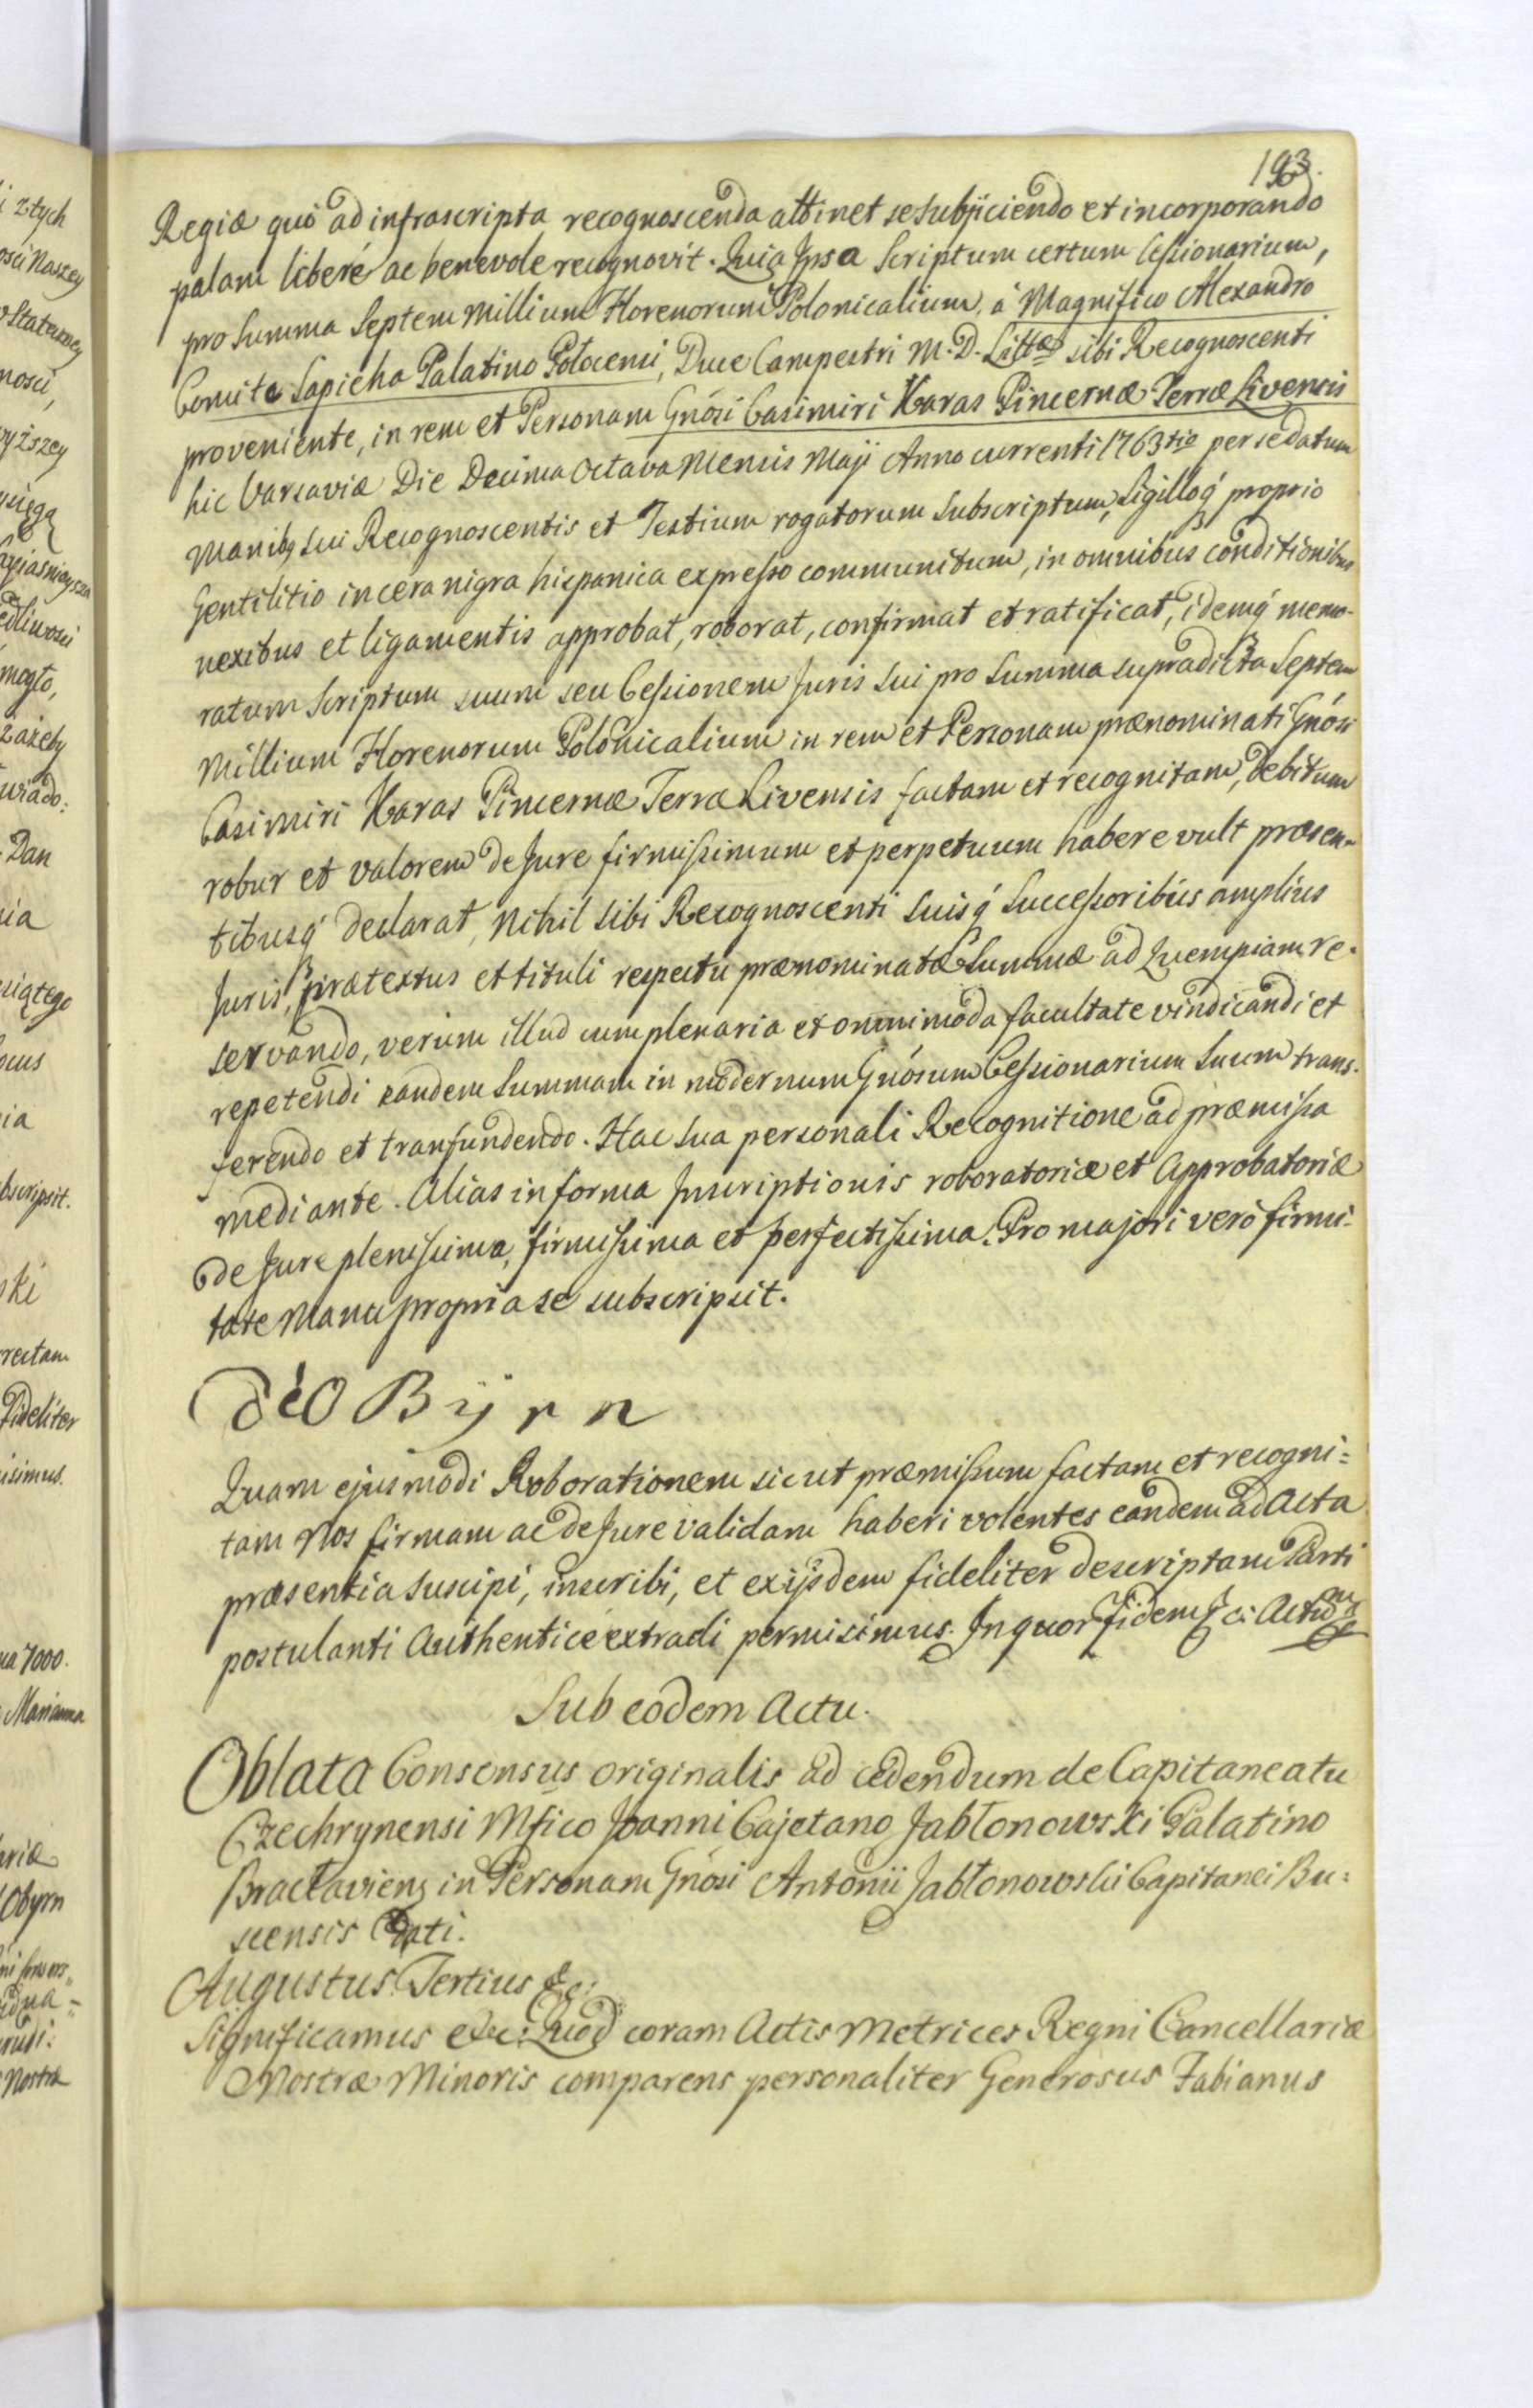 193.
Regiæ quò ad infrascripta recognoscenda attinet se subÿciendo et incorporando
palam liberè ac benevole recognovit. Quia Ipsa Scriptum certum Cessionarium,
pro Summa Septem Millium Florenorum Polonicalium, à Magnifico Alexandro
Comite Sapieha Palatino Polocensi, Duce Campestri M. D. Littæ sibi Recognoscenti
proveniente, in rem et Personam Gnōsi Casimiri Karas Pincernæ Terræ Livensis
hic Varsaviæ Die Decima Octava Mensis Maji Anno currenti 1763tio per se datum
Manibq Sui Recognoscentis et Testium rogatorum Subscriptum, Sigilloq́ proprio
Gentilitio in cera nigra hispanica expresso communitum, in omnibus conditionibus
nexibus et ligamentis approbat, roborat, confirmat et ratificat, idemq́ memo-
ratum Scriptum suum seu Cessionem Juris Sui pro Summa supradicta Septem
Millium Florenorum Polonicalium in rem et Personam prænominati Gnōsi
Casimiri Karas Pincernæ Terræ Livensis factam et recognitam, debitum
robur et valorem de Jure firmissimum et perpetuum habere vult præsen-
tibusq́ declarat, Nihil Sibi Recognoscenti Suisq́ Successoribus amplius
Juris, prætextus et tituli respectu prænominatæ Summæ ad Quempiam re-
servando, verum illud cum plenaria et omnimoda facultate vindicandi et
repetendi eandem Summam in modernum Gnōsum Cessionarium Suum trans-
ferendo et tranfundendo. Hac Sua personali Recognitione ad præmissa
mediante. Alias in forma Inscriptionis roboratoriæ et Approbatoriæ
de Jure plenissima, firmissima et perfectissima. Pro majori verò firmi-
tate Manu propria se subscripsit.
de O Bÿrn
Quam ejusmodi Roborationem sicut præmissum factam et recogni=
tam Nos firmam ac de Jure validam haberi volentes eandem ad Acta
præsentia Suscipi, inscribi, et exijsdem fideliter descriptam Parti
postulanti Authenticè extradi permisimus. In quor Fidem &c: Actum
Sub eodem Actu.
Oblata Consensus originalis ad cedendum de Capitaneatu
Czechrynensi Mfico Joanni Cajetano Jabłonowski Palatino
Bracłaviens in Personam Gnōsi Antonii Jabłonowski Capitanei Bu=
scensis Dati.
Augustus Tertius &c:
Significamus &c: Quod coram Actis Metrices Regni Cancellariæ
Nostræ Minoris comparens personaliter Generosus Fabianus